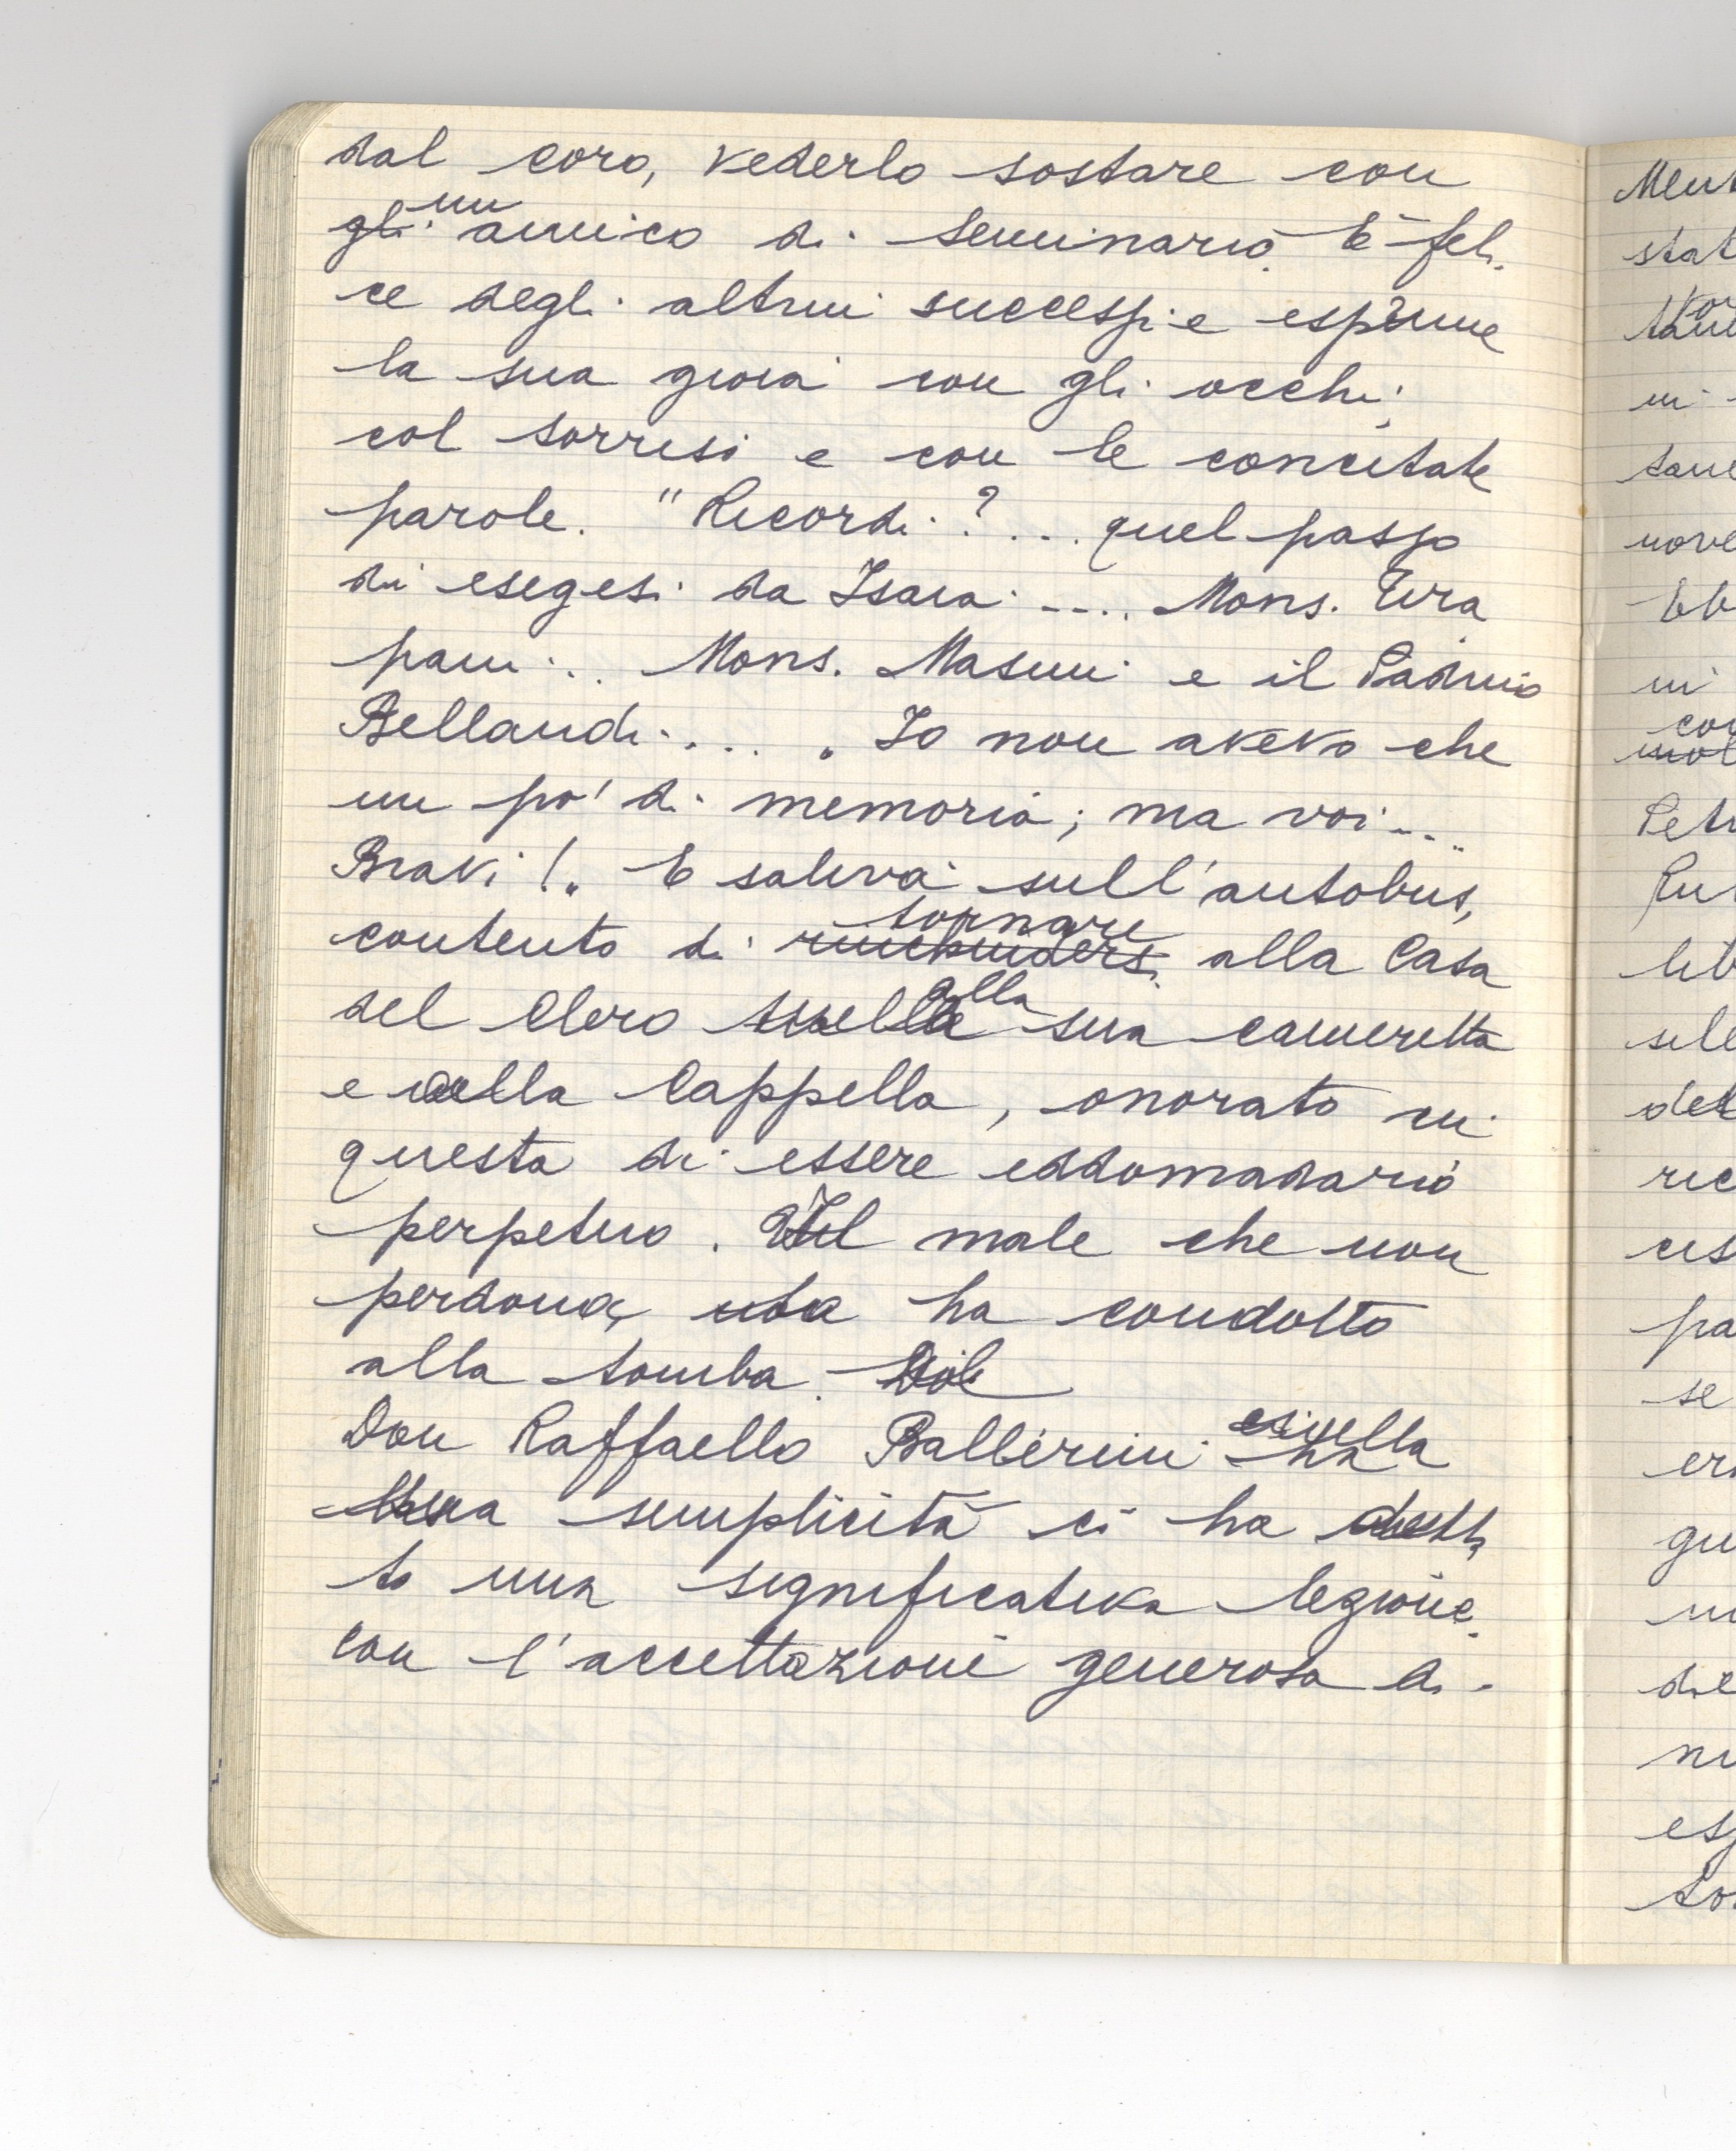 dal coro, vederlo sostare con
~~gli~~ un amico di seminario. È feli
ce degli altrui successi e esprime
la sua gioia con gli occhi,
col sorriso e con le concitate
parole. "Ricordi? ... quel passo
di esegesi da Isaia .... Mons. Tira
pani .. Mons. Masini e il Padrino
Bellandi .... . Io non avevo che
un po' di memoria; ma voi ...
Bravi!" E saliva sull'autobus,
contento di tornare alla Casa
del Clero alla sua cameretta
e alla Cappella, onorato in
questa di essere eddomadario
perpetuo. Il male che non
perdona, ha condotto
alla tomba.
Don Raffaello Ballerini nella
sua semplicità ci ha
to una significativa lezione
con l'accettazione generosa di
Ment
stat
tor
in
tane
nove
Eb
in
con
Petr
Ru
lib
sele
del
ric
cis
pa
se
er
gu
di
esp